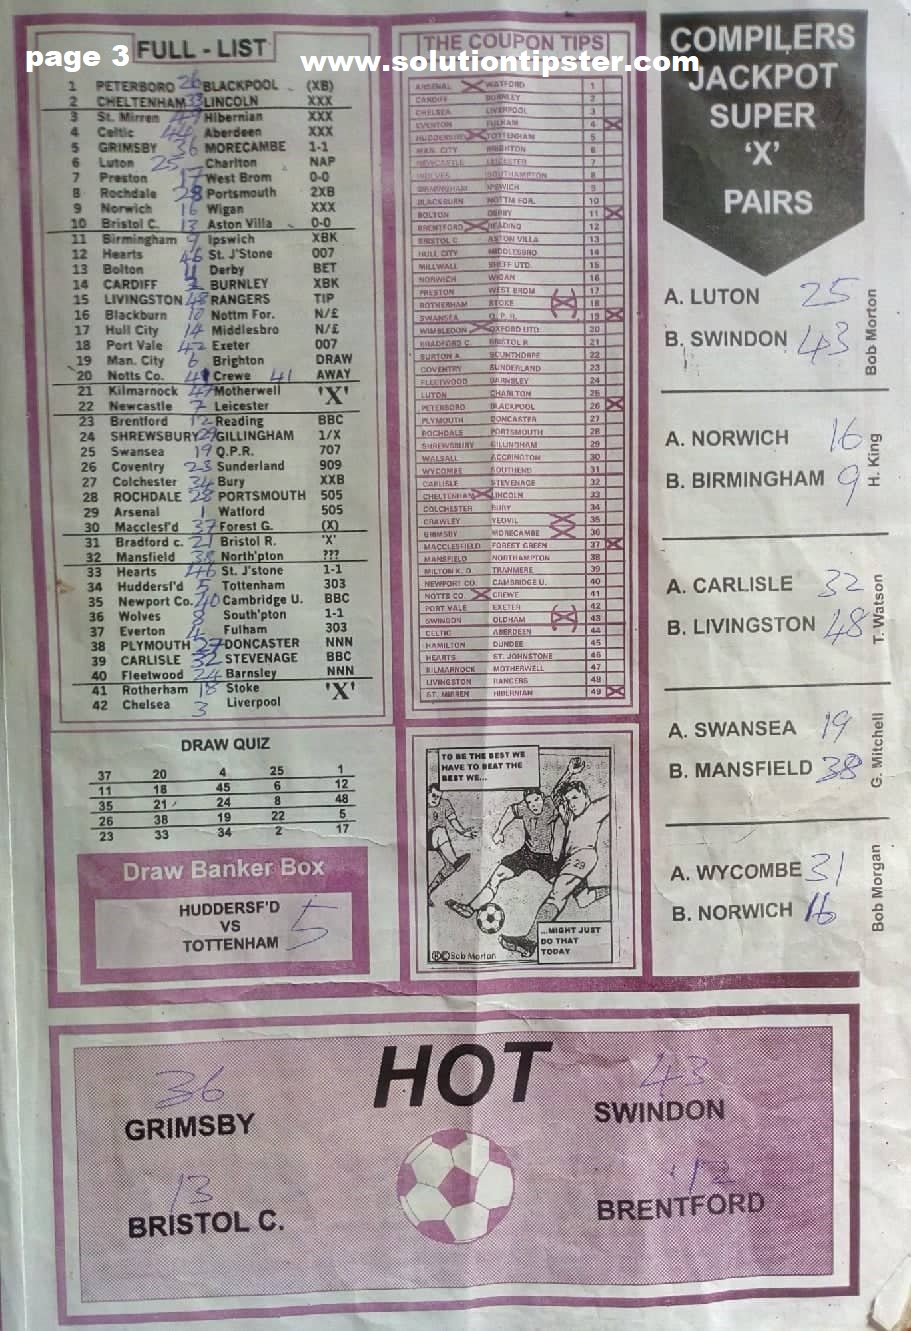 page 3
www.solutiontipster.com
FULL - LIST
1 PETERBORO 26 BLACKPOOL (XB)
2 CHELTENHAM 33 LINCOLN XXX
3 St. Mirren 49 Hibernian XXX
4 Celtic 44 Aberdeen XXX
5 GRIMSBY 36 MORECAMBE 1-1
6 Luton 25 Charlton NAP
7 Preston 17 West Brom 0-0
8 Rochdale 28 Portsmouth 2XB
9 Norwich 16 Wigan XXX
10 Bristol C. 13 Aston Villa 0-0
11 Birmingham 9 Ipswich XBK
12 Hearts 46 St. J'Stone 007
13 Bolton 11 Derby BET
14 CARDIFF 2 BURNLEY XBK
15 LIVINGSTON 48 RANGERS TIP
16 Blackburn 10 Nottm For. N/£
17 Hull City 14 Middlesbro N/£
18 Port Vale 42 Exeter 007
19 Man. City 6 Brighton DRAW
20 Notts Co. Crewe 41 AWAY
21 Kilmarnock 47 Motherwell 'X'
22 Newcastle 7 Leicester
23 Brentford 12 Reading BBC
24 SHREWSBURY 29 GILLINGHAM 1/X
25 Swansea 19 Q.P.R. 707
26 Coventry 23 Sunderland 909
27 Colchester 34 Bury XXB
28 ROCHDALE 28 PORTSMOUTH 505
29 Arsenal 1 Watford 505
30 Macclesf'd 37 Forest G. (X)
31 Bradford c. 21 Bristol R. 'X'
32 Mansfield 38 North'pton ???
33 Hearts 46 St. J'stone 1-1
34 Huddersf'd 5 Tottenham 303
35 Newport Co. 40 Cambridge U. BBC
36 Wolves 8 South'pton 1-1
37 Everton 4 Fulham 303
38 PLYMOUTH 27 DONCASTER NNN
39 CARLISLE 32 STEVENAGE BBC
40 Fleetwood 24 Barnsley NNN
41 Rotherham 18 Stoke 'X'
42 Chelsea 3 Liverpool
THE COUPON TIPS
ARSENAL WATFORD 1
CARDIFF BURNLEY 2
CHELSEA LIVERPOOL 3
EVERTON FULHAM 4
HUDDERSF'D TOTTENHAM 5
MAN. CITY BRIGHTON 6
NEWCASTLE LEICESTER 7
WOLVES SOUTHAMPTON 8
BIRMINGHAM IPSWICH 9
BLACKBURN NOTTM FOR. 10
BOLTON DERBY 11
BRENTFORD READING 12
BRISTOL C ASTON VILLA 13
HULL CITY MIDDLESBRO 14
MILLWALL SHEFF UTD. 15
NORWICH WIGAN 16
PRESTON WEST BROM 17
ROTHERHAM STOKE 18
SWANSEA Q. P. R. 19
WIMBLEDON OXFORD UTD. 20
BRADFORD C. BRISTOL R 21
BURTON A. SCUNTHORPE 22
COVENTRY SUNDERLAND 23
FLEETWOOD BARNSLEY 24
LUTON CHARLTON 25
PETERBORO BLACKPOOL 26
PLYMOUTH DONCASTER 27
ROCHDALE PORTSMOUTH 28
SHREWSBURY GILLINGHAM 29
WALSALL ACCRINGTON 30
WYCOMBE SOUTHEND 31
CARLISLE STEVENAGE 32
CHELTENHAM LINCOLN 33
COLCHESTER BURY 34
CRAWLEY YEOVIL 35
GRIMSBY MORECAMBE 36
MACCLESFIELD FOREST GREEN 37
MANSFIELD NORTHAMPTON 38
MILTON K. D. TRANMERE 39
NEWPORT CO. CAMBRIDGE U. 40
NOTTS CO. CREWE 41
PORT VALE EXETER 42
SWINDON OLDHAM 43
CELTIC ABERDEEN 44
HAMILTON DUNDEE 45
HEARTS ST. JOHNSTONE 46
KILMARNOCK MOTHERWELL 47
LIVINGSTON RANGERS 48
ST. MIRREN HIBERNIAN 49
COMPILERS
JACKPOT
SUPER
'X'
PAIRS
A. LUTON 25
B. SWINDON 43
Bob Morton
A. NORWICH 16
B. BIRMINGHAM 9
H. King
A. CARLISLE 32
B. LIVINGSTON 48
T. Watson
A. SWANSEA 19
B. MANSFIELD 38
G. Mitchell
A. WYCOMBE 31
B. NORWICH 16
Bob Morgan
DRAW QUIZ
37 20 4 25 1
11 18 45 6 12
35 21 24 8 48
26 38 19 22 5
23 33 34 2 17
Draw Banker Box
HUDDERSF'D
VS
TOTTENHAM 5
TO BE THE BEST WE
HAVE TO BEAT THE
BEST WE...
29
...MIGHT JUST
DO THAT
TODAY
®©Bob Morton
HOT
36
GRIMSBY
43
SWINDON
13
BRISTOL C.
12
BRENTFORD